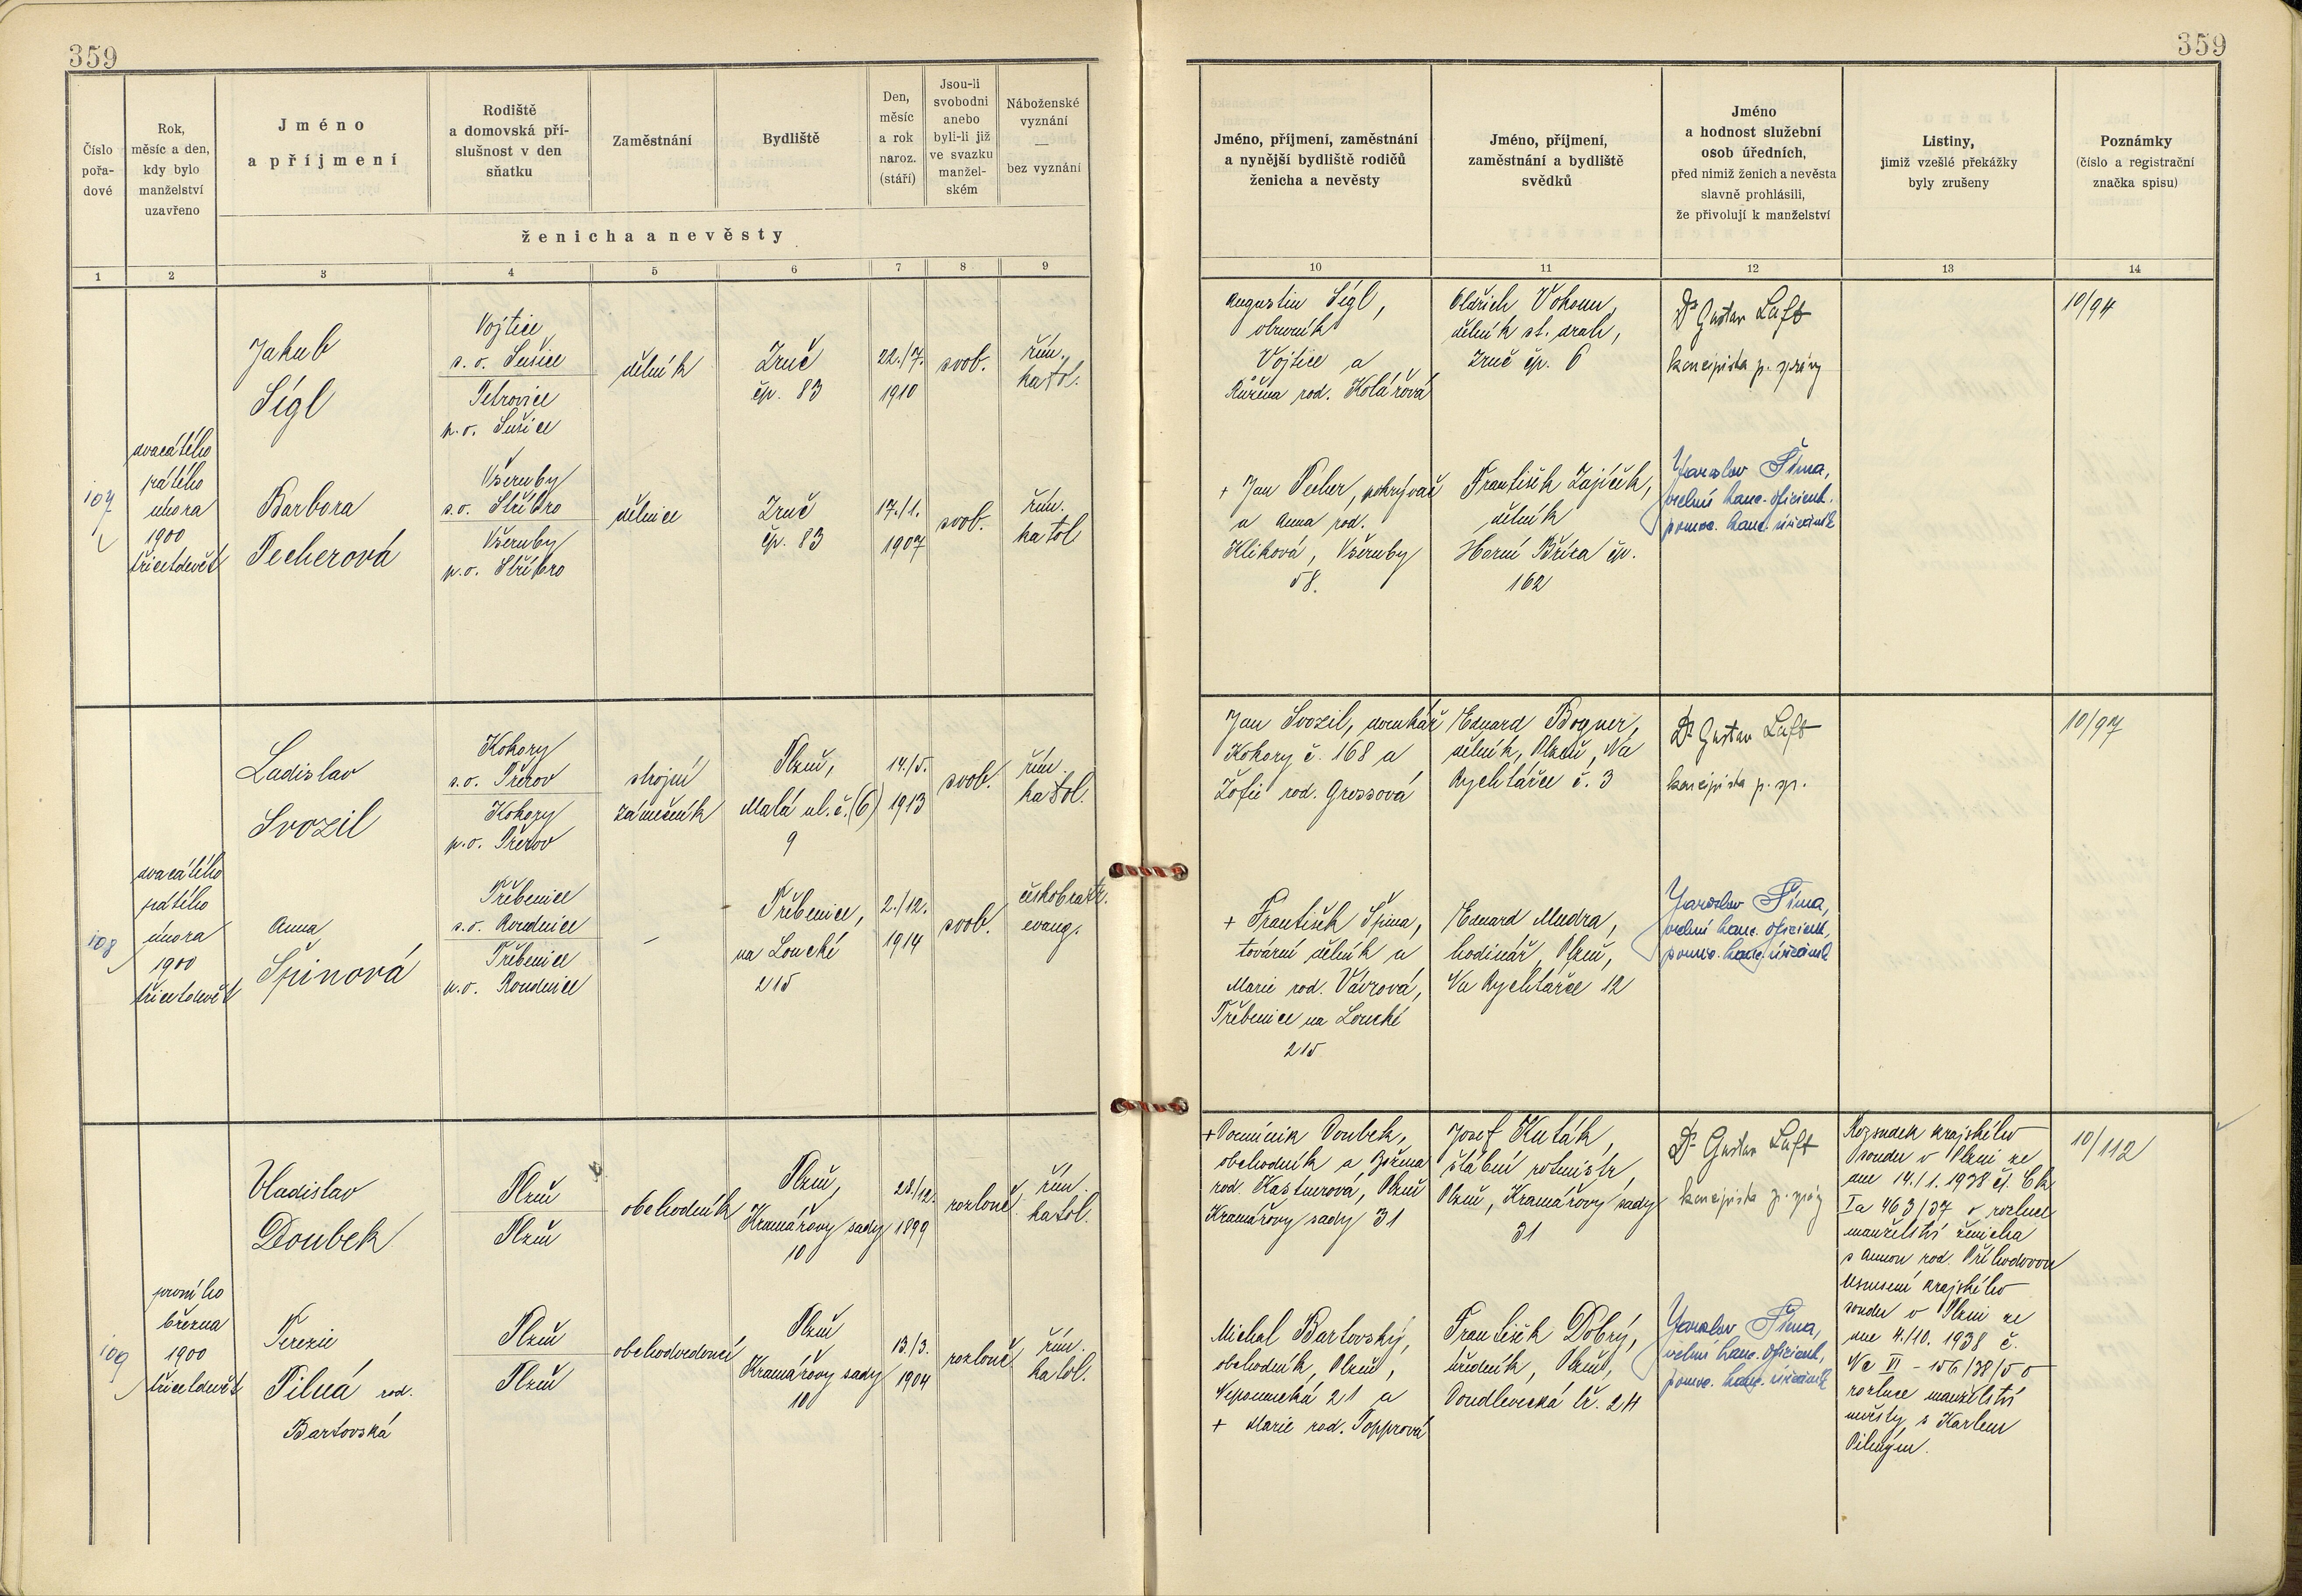 359
359
Číslo
pořa-
dové
Rok,
měsíc a den,
kdy bylo
manželství
uzavřeno
Jméno
a příjmení
Rodiště
a domovská pří-
slušnost v den
sňatku
Zaměstnání
Bydliště
Den,
měsíc
a rok
naroz.
(stáří)
Jsou-li
svobodni
anebo
byli-li již
ve svazku
manžel-
ském
Náboženské
vyznání
—
bez vyznání
ženicha a nevěsty
Jméno, příjmení, zaměstnání
a nynější bydliště rodičů
ženicha a nevěsty
Jméno, příjmení,
zaměstnání a bydliště
svědků
Jméno
a hodnost služební
osob úředních,
před nimiž ženich a nevěsta
slavně prohlásili,
že přivolují k manželství
Listiny,
jimiž vzešlé překážky
byly zrušeny
Poznámky
(číslo a registrační
značka spisu)
1 2 3 4 5 6 7 8 9 10 11 12 13 14
107
dvacátého
pátého
února
1900
třicetdevět
Jakub
Sígl
Vojtice
s. o. Sušice
Petrovice
p. o. Sušice
dělník
Zruč
čp. 83
22./7.
1910
svob.
řím.
katol.
Augustin Sígl,
obuvník
Vojtice a
Růžena rod. Kolářová
Oldřich Vohoun,
dělník st. drah,
Zruč čp. 6
Dr Gustav Luft
koncipista p. správy
10/94
Barbora
Pecherová
Všeruby
s. o. Stříbro
Všeruby
p. o. Stříbro
dělnice
Zruč
čp. 83
17./1.
1907
svob.
řím.
katol
+ Jan Pecher, pokrývač
a Anna rod.
Kliková, Všeruby
58.
František Zajíček,
dělník
Horní Bříza čp.
162
Jaroslav Šíma,
vrchní kanc. oficiant,
pomoc. kanc. úředník
108
dvacátého
pátého
února
1900
třicetdevět
Ladislav
Svozil
Kokory
s. o. Přerov
Kokory
p. o. Přerov
strojní
zámečník
Plzeň,
Malá ul. č. (6)
9
14./5.
1913
svob.
řím.
katol.
Jan Svozil, domkář
Kokory č. 168 a
Žofie rod. Grossová
Eduard Bogner,
dělník, Plzeň, Na
Rychtářce č. 3
Dr Gustav Luft
koncipista p. sp.
10/97
Anna
Špinová
Třebenice
s. o. Roudnice
Třebenice
p. o. Roudnice
—
Třebenice,
na Loučkí
215
2./12.
1914
svob.
českobratr.
evang.
+ František Špina,
tovární dělník a
Marie rod. Vávrová,
Třebenice na Loučkí
215
Eduard Mudra,
hodinář, Plzeň,
Na Rychtářce 12
Jaroslav Šíma,
vrchní kanc. oficiant,
pomoc. kanc. úředník
109
prvního
března
1900
třicetdevět
Vladislav
Doubek
Plzeň
Plzeň
obchodník
Plzeň,
Kramářovy sady
10
28./12.
1899
rozlouč.
řím.
katol.
+ Dominik Doubek,
obchodník a Božena
rod. Kastnerová, Plzeň
Kramářovy sady 31
Josef Kuták,
štábní rotmistr,
Plzeň, Kramářovy sady
31
Dr Gustav Luft
koncipista p. správy
Rozsudek krajského
soudu v Plzni ze
dne 14./1. 1938 čj. Ck
Ia 463/37 o rozluce
manželství ženicha
s Annou rod. Příhodovou
Usnesení krajského
soudu v Plzni ze
dne 4./10. 1938 č.
Nc VI - 156/38/5 o
rozluce manželství
nevěsty s Karlem
Pilným.
10/112
Terezie
Pilná rod.
Bartovská
Plzeň
Plzeň
obchodvedoucí
Plzeň
Kramářovy sady
10
13./3.
1904
rozlouč.
řím.
katol.
Michal Bartovský,
obchodník, Plzeň,
Nepomucká 21 a
+ Marie rod. Topprová
František Dobrý,
úředník, Plzeň,
Doudlevecká tř. 24
Jaroslav Šíma,
vrchní kanc. oficiant,
pomoc. kanc. úředník